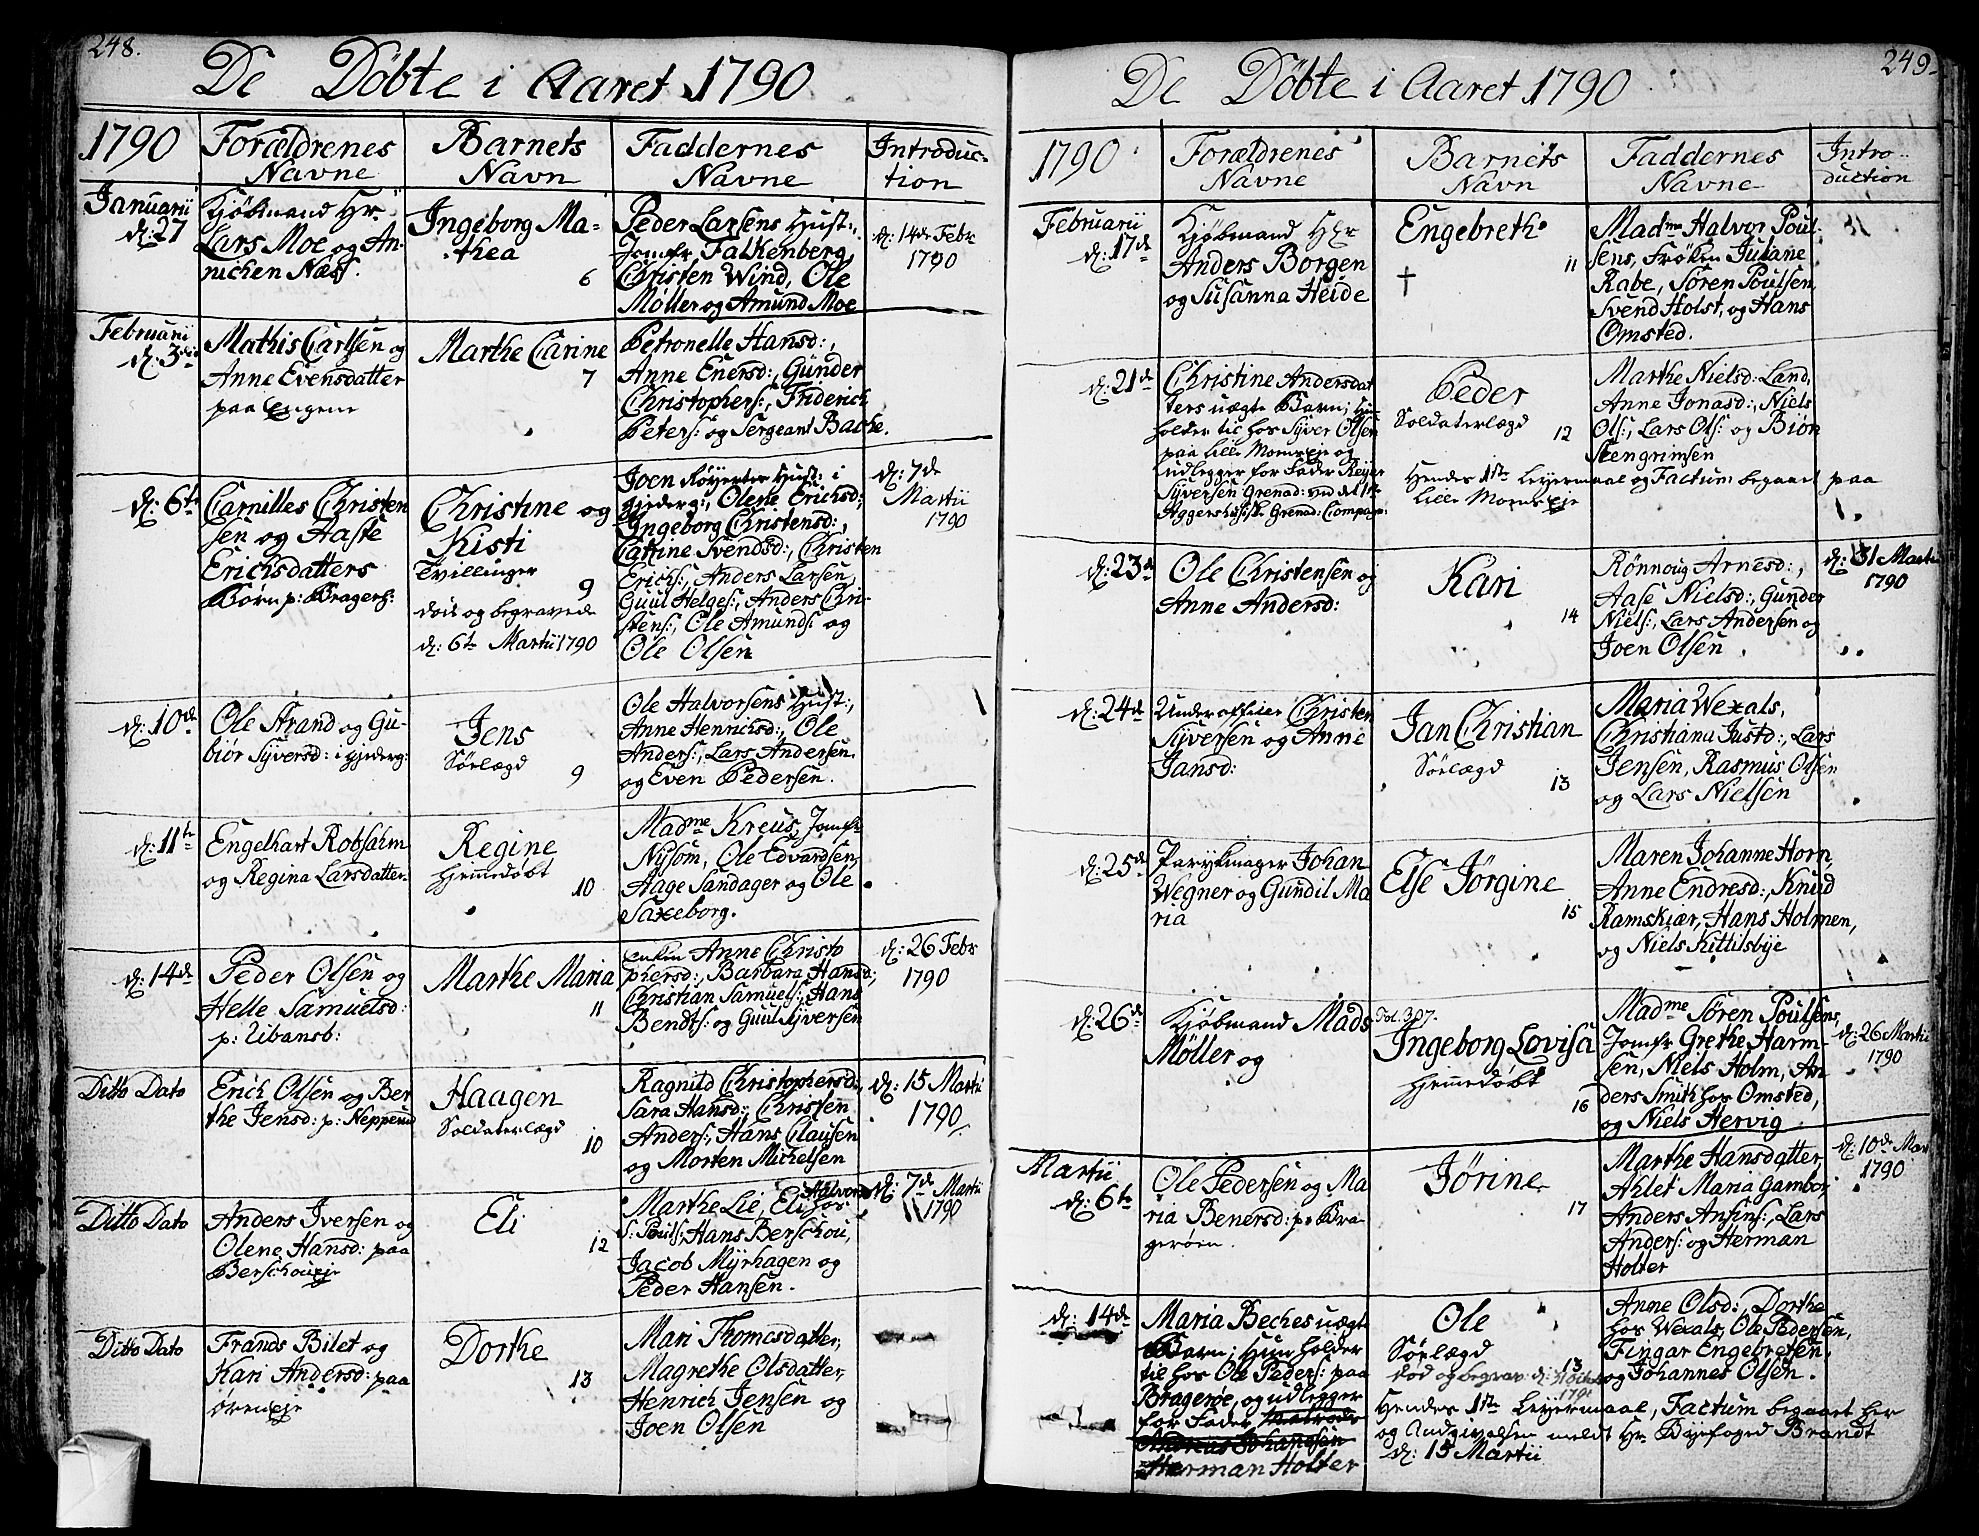 248.
De Döbte i Aaret 1790
1790
Forældrenes Navne
Barnets Navn
Faddernes Navne
Introduc-
tion
Januarii
d: 27
Kjöbmand Hr
Lars Moe og An-
nichen Næss.
Ingeborg Ma-
thea
6
Peder Larsens Hust:,
Jomfr Falkenberg,
Christen Wind, Ole
Møller og Amund Moe
d: 14de Febr
1790
Februarii
d: 3die
Mathis Carlsen og
Anne Evensdatter
paa Engene
Marthe Carine
7
Petronelle Hansd:,
Anne Enersd:, Gunder
Christophers:, Friderich
Peters: og Sergeant Bache.
d: 6te
Camilles Christen
sen og Aaste
Erichsdatters
Börn p: Bragers:
Christine og
Kisti
Tvillinger
9
döde og begravede
d: 6te Martii 1790
Joen Röyerter Hust: i
Gjederg:, Olene Erichsd:,
Ingeborg Christensd:,
Catrine Svendsd:, Christen
Erichs:, Anders Larsen,
Guul Helges:, Anders Chri-
stens:, Ole Amunds: og
Ole Olsen
d: 7de
Martii
1790
d: 10de
Ole Strand og Gu-
biör Syversd: i Gjederg:
Jens
Söelægd
9
Ole Halvorsens Hust:,
Anne Henrichsd:, Ole
Anders:, Lars Andersen
og Even Pedersen.
d: 11te
Engelhart Robsahm
og Regina Larsdatter
Regine
Hjemedöbt
10
Madme Kreus, Jomfr
Nysom, Ole Edvardsen,
Aage Sandager og Ole
Saxeborg.
d: 14de
Peder Olsen og
Helle Samuelsd:
p: Ubansb:
Marthe Maria
11
Enken Anne Christo
phersd:, Barbara Hansd:,
Christian Samuels:, Hans
Bendts: og Guul Syversen
d: 26 Febr
1790
Ditto Dato
Erich Olsen og Ber
the Jensd: p: Neppeud
Haagen
Soldaterlægd
10
Ragnild Christophersd:,
Sara Hansd:, Christen
Anders:, Hans Clausen
og Morten Michelsen
d: 15 Martii
1790
Ditto Dato
Anders Iversen og
Olene Hansd: paa
Berschoueje
Eli
12
Marthe Lie, Eli hos Halvor
S: Pouls:, Hans Berschou,
Jacob Myrhagen og
Peder Hansen.
d: 7de Martii
1790
Ditto Dato
Frands Bilet og
Kari Andersd: paa
öreneje
Dorthe
13
Mari Thomesdatter,
Magrethe Olsdatter,
Henrich Jensen og
Joen Olsen
249.
De Döbte i Aaret 1790
1790
Forældrenes Navne
Barnets Navn
Faddernes Navne
Intro-
duction
Februarii
d: 17de
Kjöbmand Hr
Anders Borgen
og Susanna Heide
Engebreth
11
†
Madme Halvor Poul-
sens, Fröken Juliane
Rabe, Sören Poulsen,
Svend Holst, og Hans
Omsted.
d: 21de
Christine Andersdat
ters uægte Barn; Hun
holder til hos Syver Olsen
paa Lille Momseje og
udlegger for Fader Reyer
Syversen Grenad: ved det 1te
Aggershusiske Grenad: Compagn:
Peder
Soldaterlægd
12
Marthe Nielsd: Land,
Anne Jonasd:, Niels
Ols:, Lars Ols: og Biön
Stengrimsen
Hendes 1ste Leyermaal og Factum begaaet paa
Lille Momseje
d: 23de
Ole Christensen og
Anne Andersd:
Kari
14
Rönnoug Arnesd:,
Aase Nielsd:, Gunder
Niels:, Lars Andersen og
Joen Olsen
d: 31 Martii
1790
d: 24de
Underofficier Christen
Syversen og Anne
Jansd:
Jan Christian
Söelægd
13
Maria Wexals,
Christiana Justd:, Lars
Jensen, Rasmus Olsen
og Lars Nielsen
d: 25de
Parykmager Johan
Wegner og Gundil Ma
ria
Else Jörgine
15
Maren Johanne Horn,
Anne Endresd:, Knud
Ramskiær, Hans Holmen,
og Niels Kittilsbye
d: 26de
Kjöbmand Mads
Møller og
Fol. 307.
Ingeborg Lovisa
Hjemedöbt
16
Madme Sören Poulsens,
Jomfr Grethe Harm-
sen, Niels Holm, An
ders Smith hos Omsted,
og Niels Hervig
d: 26 Martii
1790
Martii
d: 6te
Ole Pedersen og Ma
ria Benersd: p: Bra
geröen.
Jörine
17
Marthe Hansdatter,
Ahlet Maria Gambor,
Anders Ansins:, Lars
Anders: og Herman
Holter
d: 10de Mar
1790
d: 14de
Maria Beches uægte
Barn; Hun holder
til hos Ole Peders: paa
Bragerøe, og udlegger
for Fader Matrods
Andreas Johannsen
Herman Holter
Ole
Söelægd
13
död og begrav: d:
1790
Anne Olsd:, Dorthe
hos Wexals, Ole Pedersen,
Fingar Engebretsen,
og Johannes Olsen.
Hendes 1ste Leyermaal, Factum begaaet her
og Angivelsen meldt Hr Byefoged Brandt
d: 15 Martii